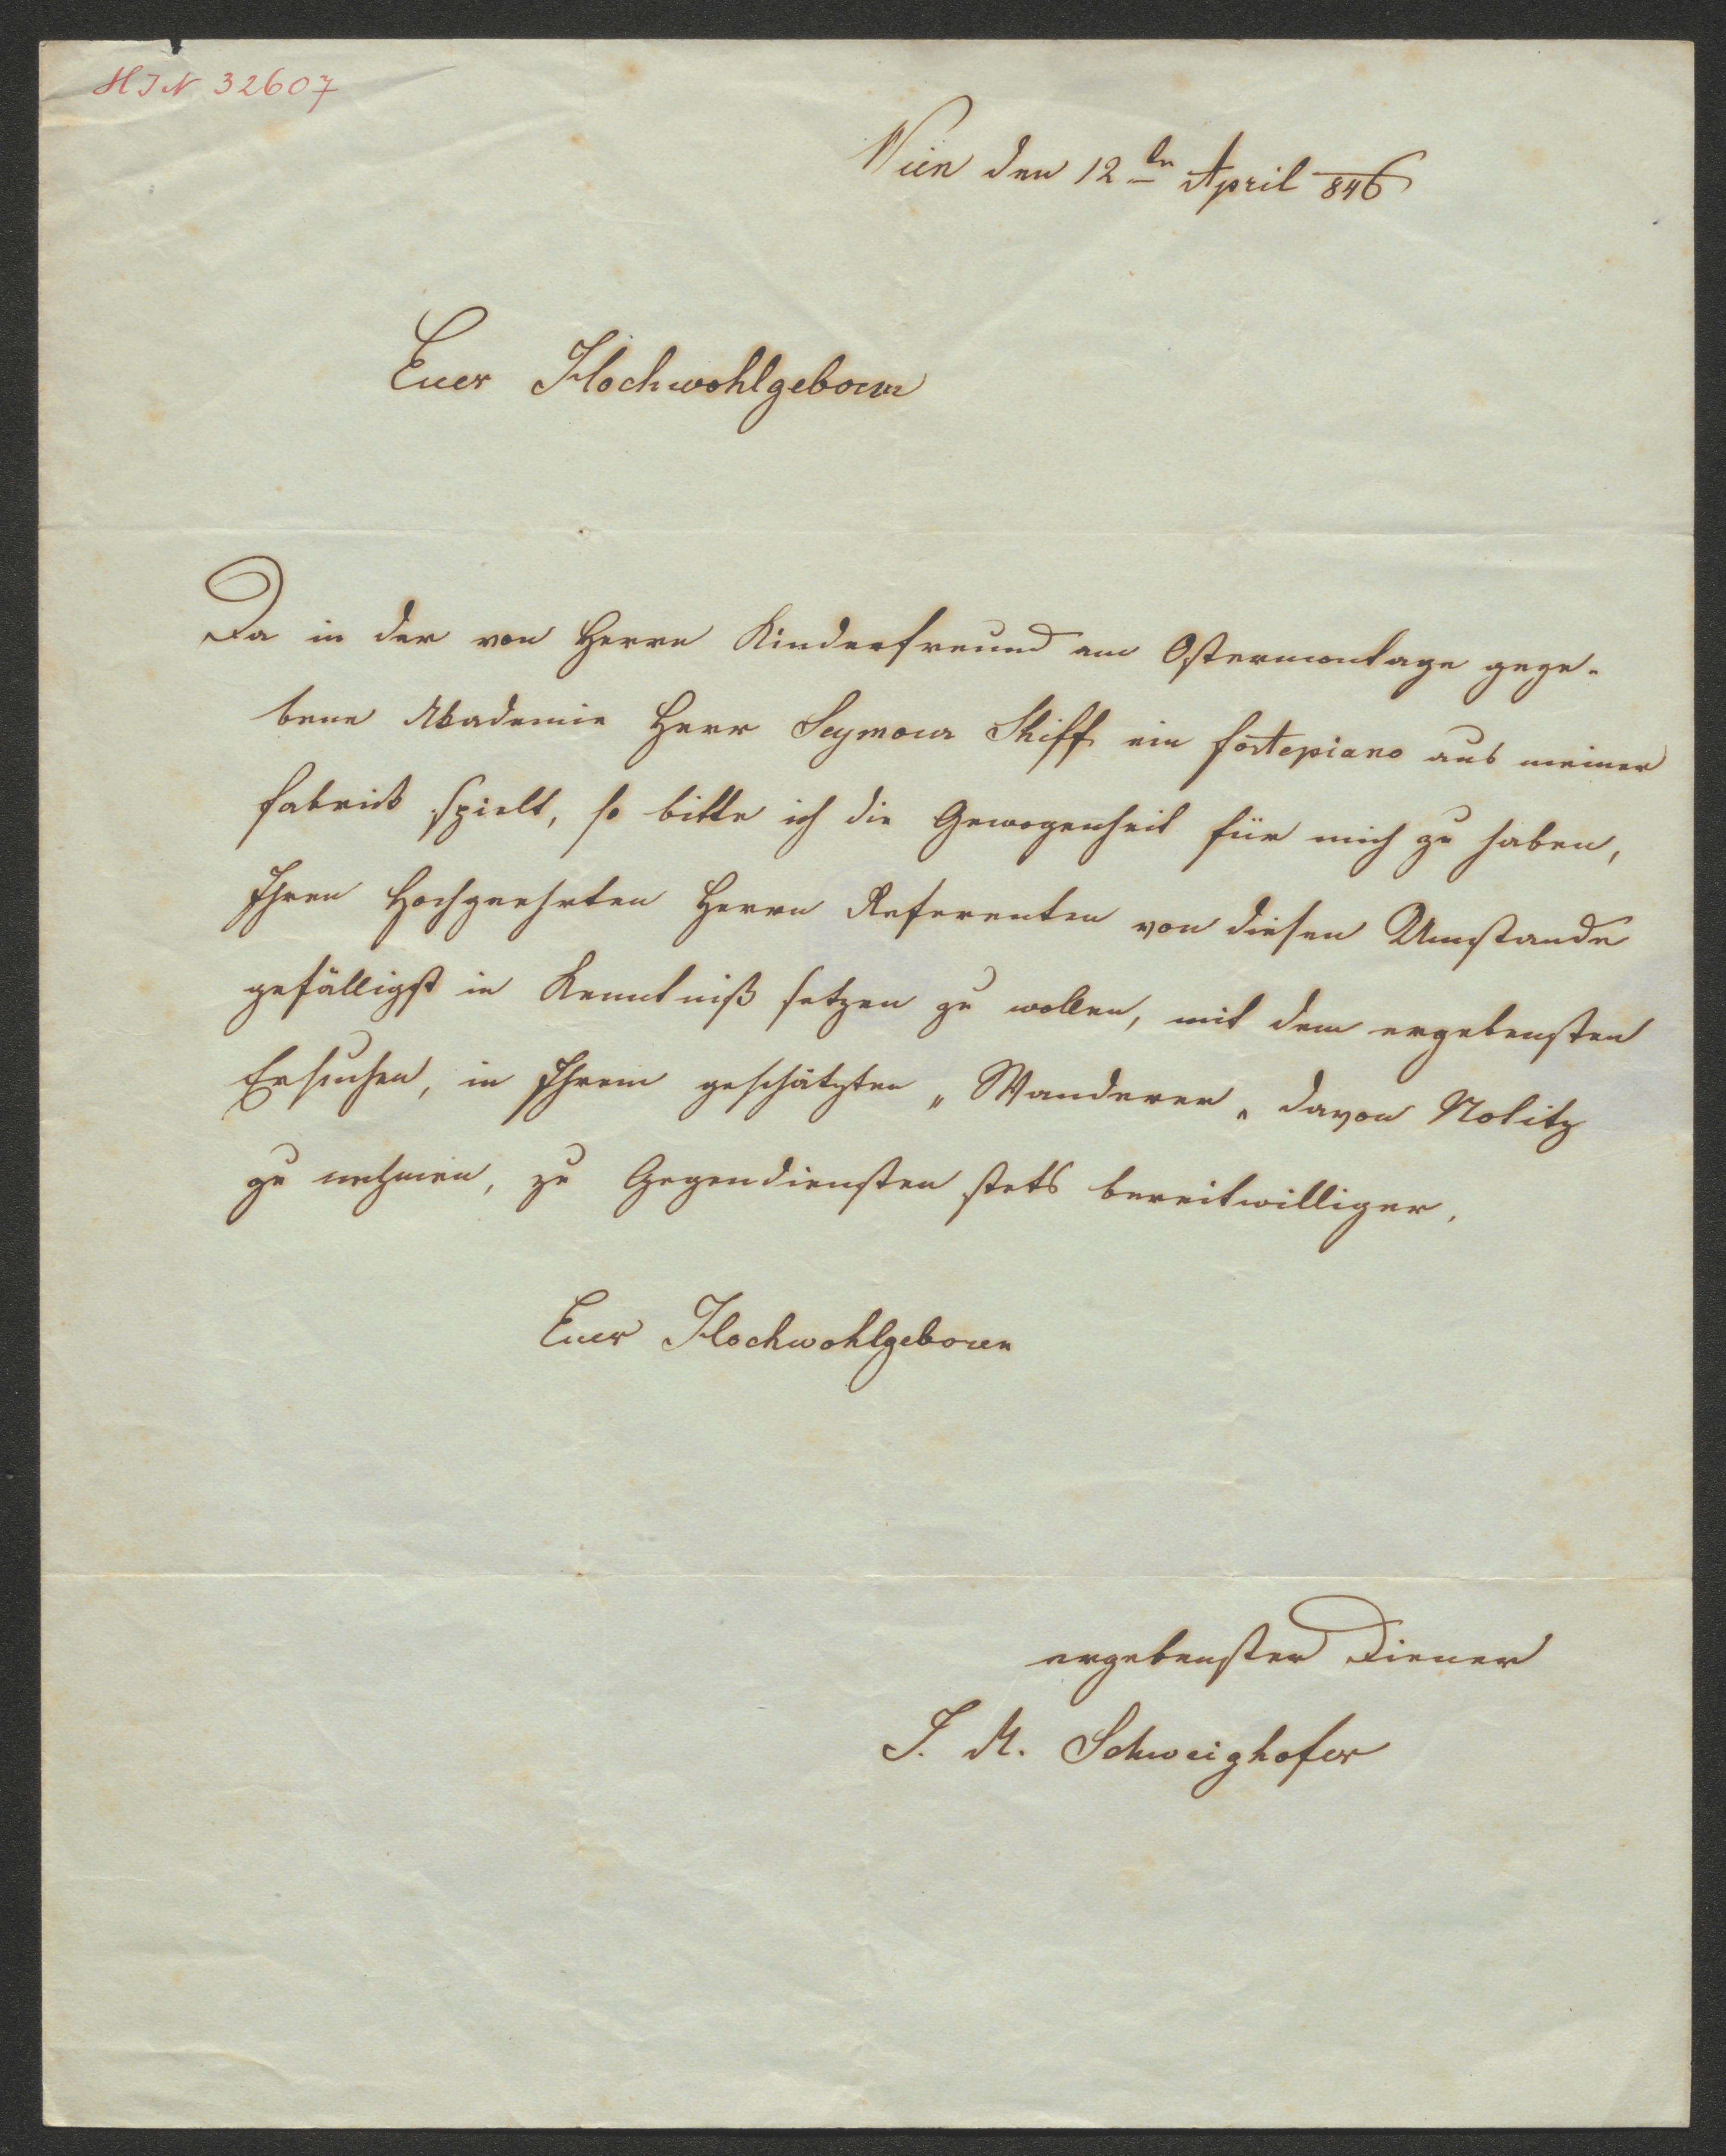 HIN 32607
Wien den 12ten April 846
Euer Hochwohlgeboren
Da in der von Herrn Kinderfreund am Ostermontage gege-
bene Akademie Herr Seymour Shiff ein Fortepiano aus meiner
Fabrick spielt, so bitte ich die Gewogenheit für mich zu haben,
Ihren Hochgeehrten Herrn Referenten von diesen Umstande
gefälligst in Kenntniß setzen zu wollen, mit dem ergebensten
Ersuchen, in Ihrem geschätzten „Wanderer„ davon Notitz
zu nehmen, zu Gegendiensten stets bereitwilliger.
Euer Hochwohlgeboren
ergebenster Diener
J. M. Schweighofer